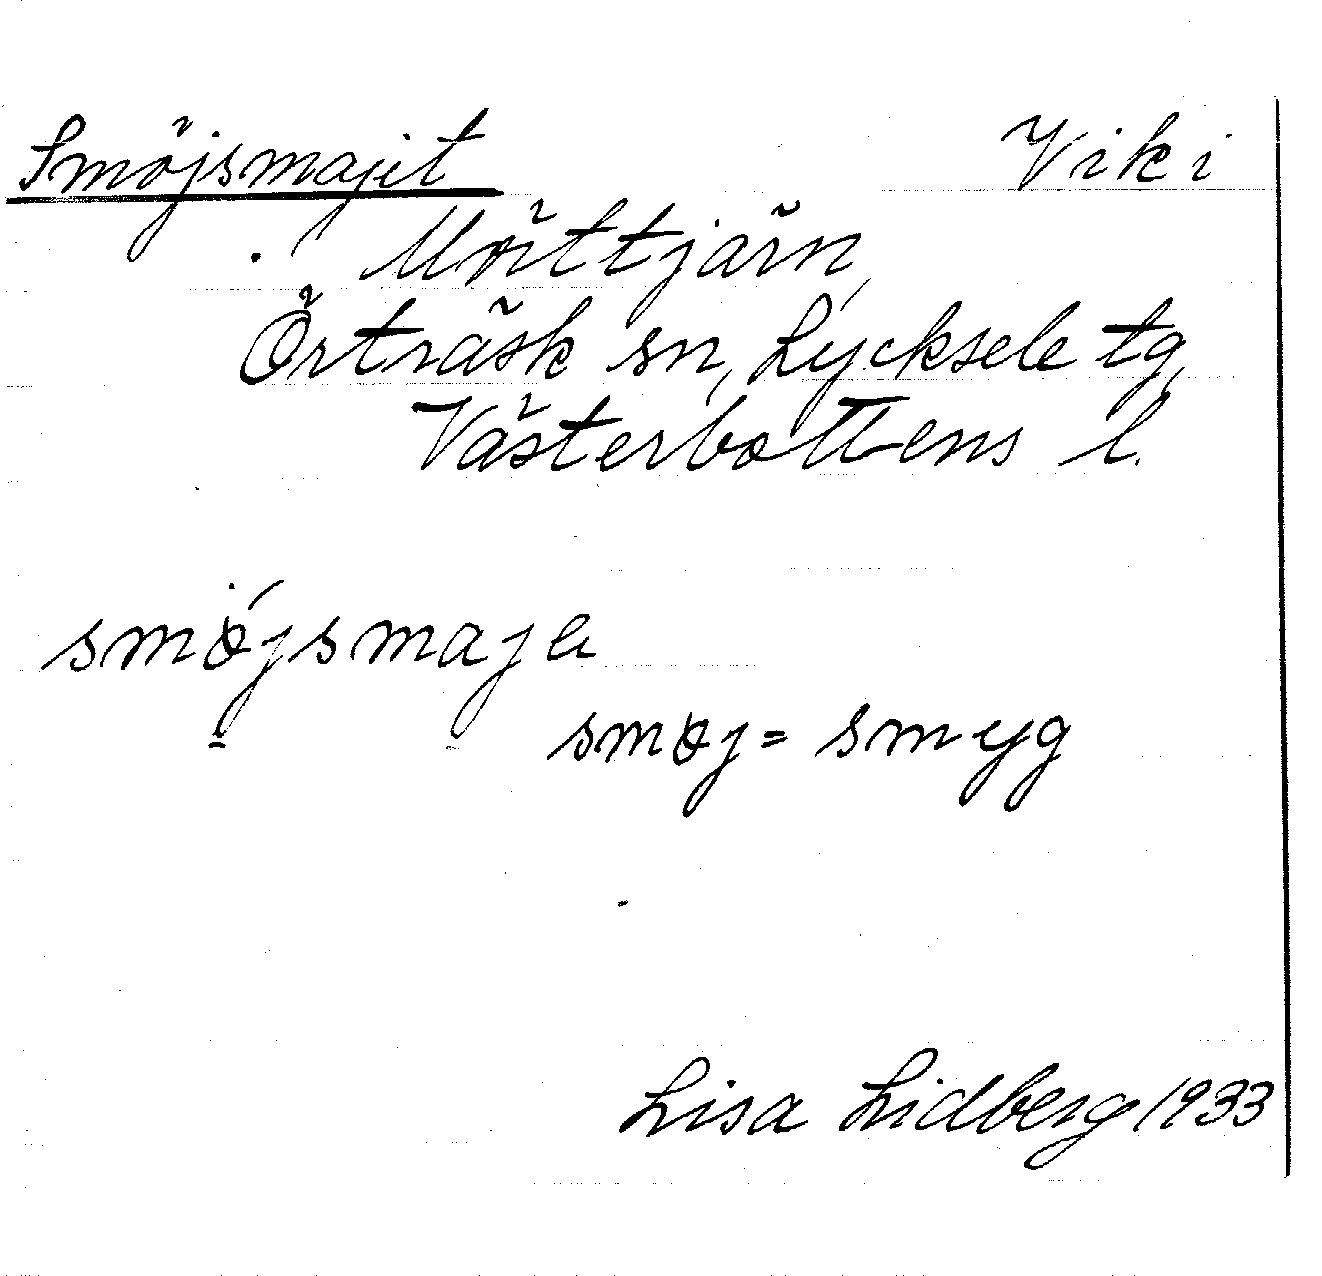 Smöjsmajit Vik i
Mörttjärn,
Örträsk sn, Lycksele tg,
Västerbottens l.
smøjsmaja
smøj = smyg
Lisa Lidberg 1933